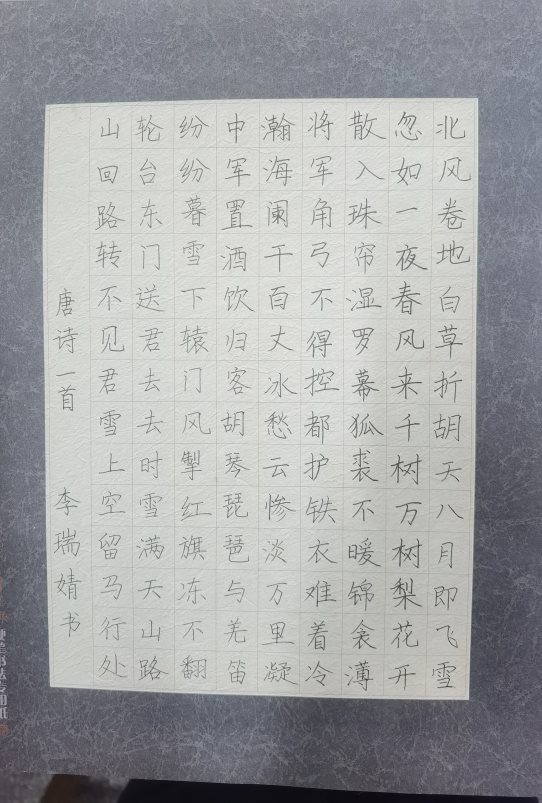 北风卷地白草折胡天八月即飞雪
忽如一夜春风来千树万树梨花开
散入珠帘湿罗幕狐裘不暖锦衾薄
将军角弓不得控都护铁衣难着冷
瀚海阑干百丈冰愁云惨淡万里凝
中军置酒饮归客胡琴琵琶与羌笛
纷纷暮雪下辕门风掣红旗冻不翻
轮台东门送君去去时雪满天山路
山回路转不见君雪上空留马行处
唐诗一首 李瑞婧书
硬笔书法专用纸